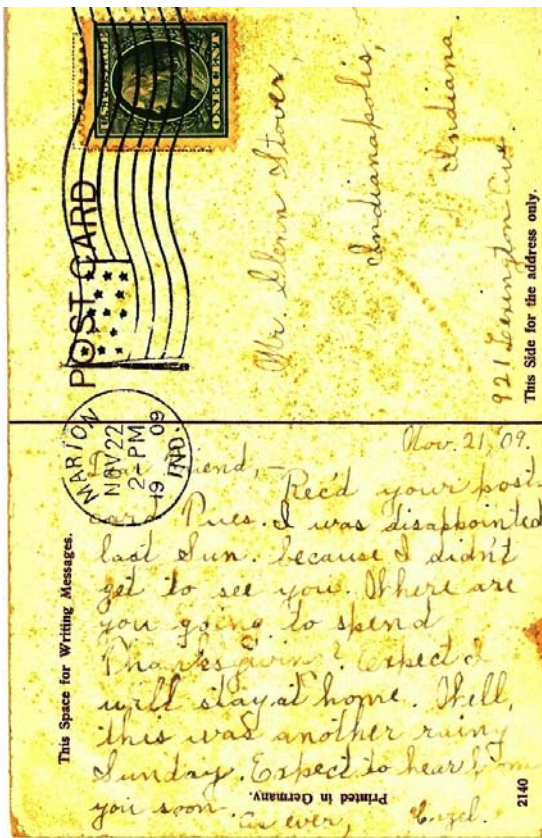 U.S. POSTAGE
ONE CENT
POST CARD
MARION
NOV 22
2-PM
1909
IND.
Mr. Glenn Stover,
Indianapolis,
Indiana.
921 Lexington Ave.
This Side for the address only.
This Space for Writing Messages.
Nov. 21, 09.
Dear Friend, –
Rec'd your post-
card Tues. I was disappointed
last Sun. because I didn't
get to see you. Where are
you going to spend
Thanksgivin? Expect I
will stay at home. Well,
this was another rainy
Sunday. Expect to hear from
you soon.
as ever,
Printed in Germany.
2140